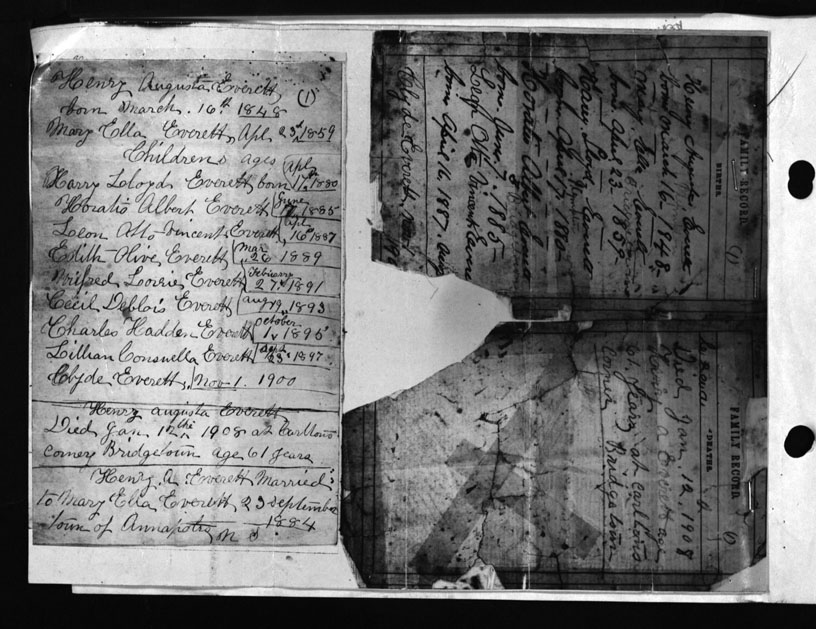 Henry Augusta Everett
(1)
born March. 16th 1848
Mary Ella Everett, Apl 23d 1859
Childrens ages
Harry Lloyd Everett born Apl 17th 1880
Horatio Albert Everett June 1885
Leon Otto Vincent Everett, Apl 16th 1887
Edith Olive Everett Mar 26 1889
Wilfred Everett February 27th 1891
Cecil Deblois Everett aug 1893
Charles Hadden Everett October 1895
Lillian Consuella Everett 1897
Clyde Everett, Nov 1. 1900
Henry augusta Everett
Died Jan 12th 1908 at Carltons
corner Bridgetown age 61 years
Henry A Everett Married
to Mary Ella Everett 23 September
1884
town of Annapolis N S
FAMILY RECORD
(1)
BIRTHS
Henry
born March 16. 1848.
Mary Ella
born April 23. 1859.
Harry Loyd
Horatio Albert
born June 7. 1885
Vincent
born April 16 1887
Clyde Everett, Nov 1
FAMILY RECORD
(1)
DEATHS
Died Jan. 12, 1908
Henry a Everett age
61 years at carltons
corner Bridgetown